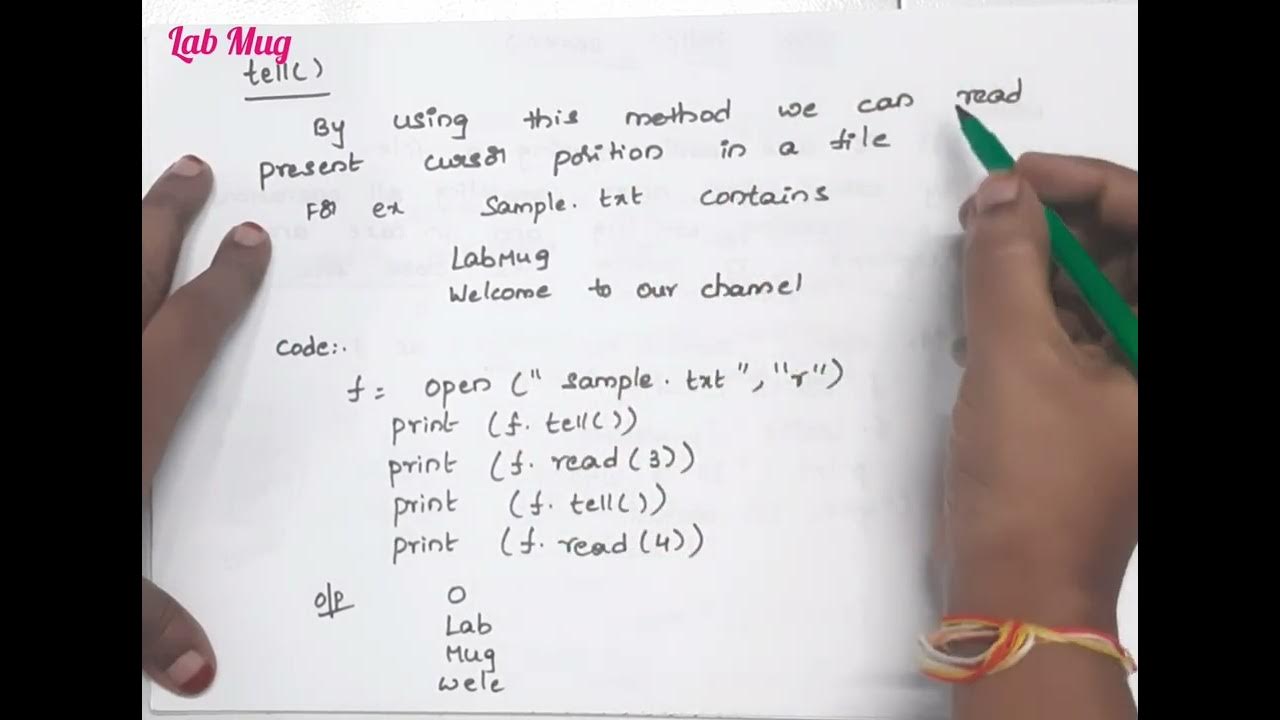 Lab Mug
tell()
By using this method we can read
present cursor position in a file
For ex Sample.txt contains
LabMug
Welcome to our channel
Code:.
f = open (" sample.txt ", "r")
print (f. tell())
print (f. read (3))
print (f. tell())
print (f. read (4))
o/p 0
Lab
Mug
wele